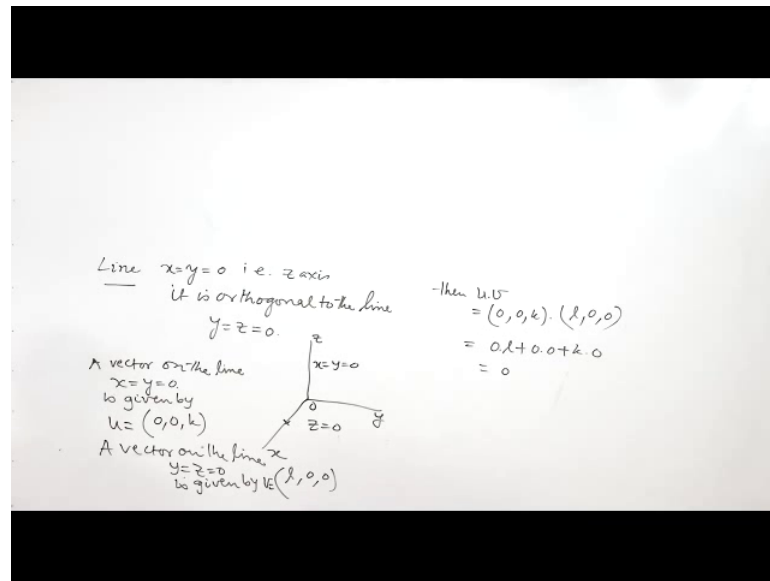 Line x=y=0 i.e. z axis
it is orthogonal to the line
y=z=0.
A vector on the line
x=y=0.
is given by
u=(0,0,k)
A vector on the line
y=z=0
is given by v=(l,0,0)
z
x=y=0
0
y
z=0
x
then u.v
=(0,0,k).(l,0,0)
= 0.l+0.0+k.0
= 0